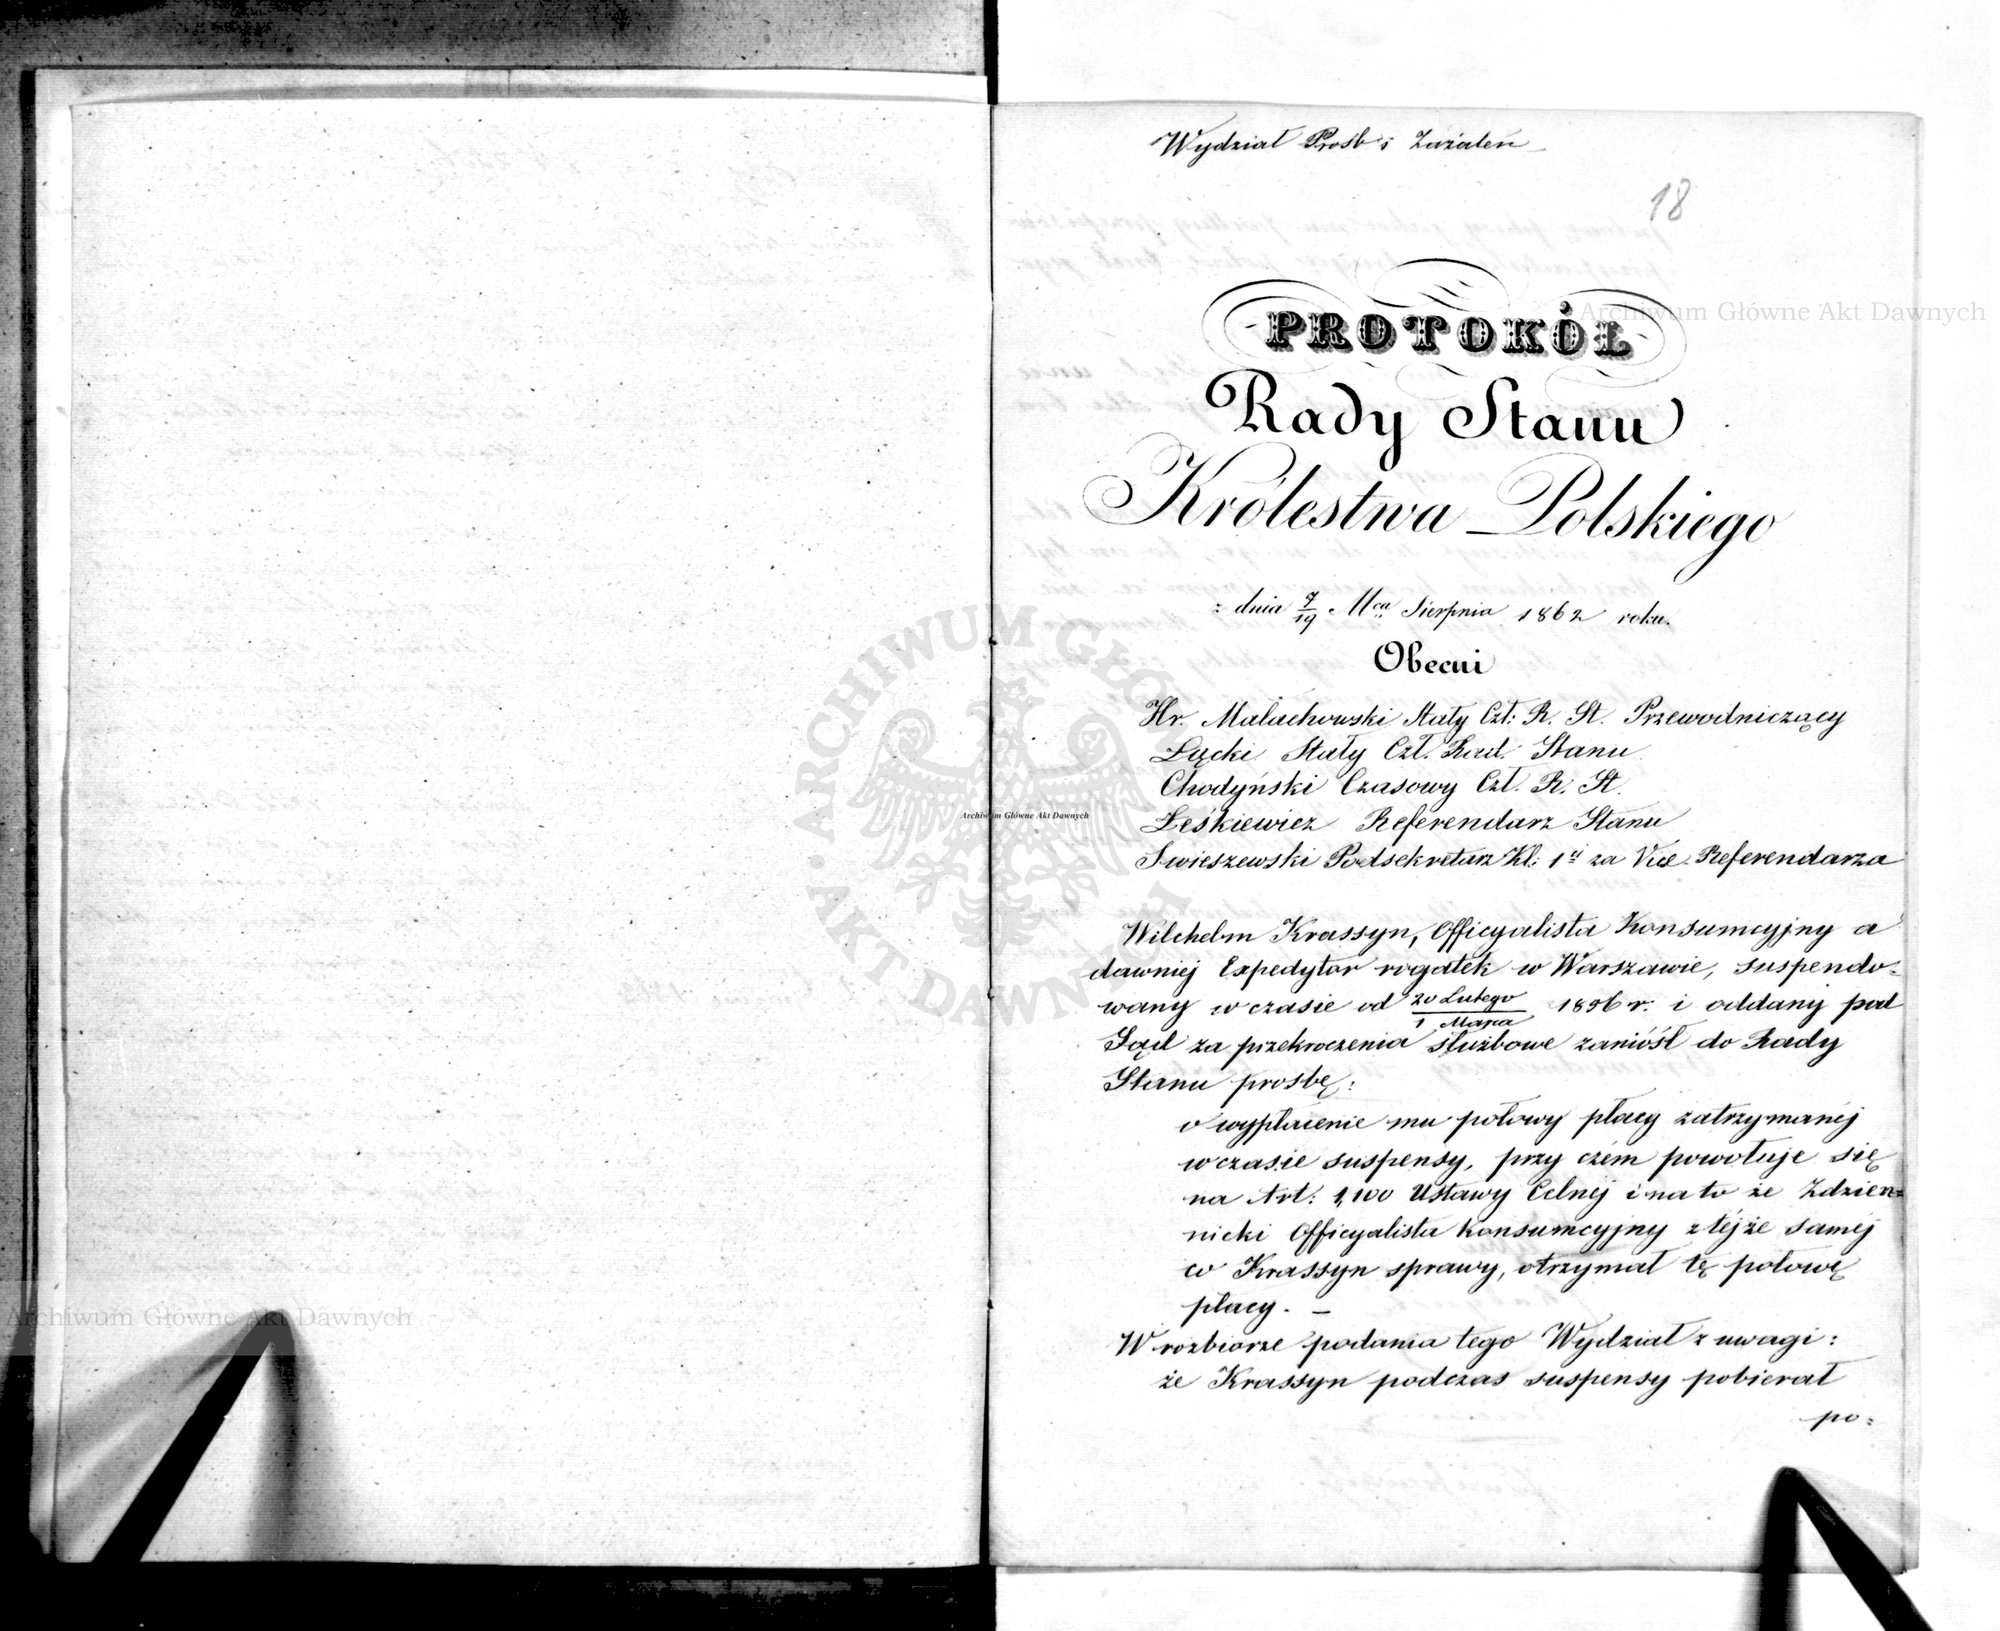 Wydział Prosb i Zażaleń
18
PROTOKÓŁ
Rady Stanu
Królestwa Polskiego
z dnia 7/19 Mca Sierpnia 1862 roku.
Obecni
Hr. Małachowski Stały Czł: R. St. Przewodniczący
Łącki Stały Czł. Rad. Stanu
Chodyński Czasowy Czł. R. St.
Leśkiewicz Referendarz Stanu
Swieszewski Podsekretarz Kl: 1éj za Vice-Referendarza
Wilchelm Krassyn, Officyalista Konsumcyjny a
dawniej Expedytor rogatek w Warszawie, suspendo-
wany w czasie od 20 Lutego/1 Marca 1856 r. i oddany pod
Sąd za przekroczenia służbowe zaniósł do Rady
Stanu prosbę:
o wypłacenie mu połowy płacy zatrzymanéj
w czasie suspensy, przy czém powołuje się
na Art: 1,100 Ustawy Celnéj i na to że Zdzien=
nicki Officyalista Konsumcyjny z téjże saméj
co Krassyn sprawy, otrzymał tę połowę
płacy. —
W rozbiorze podania tego Wydział z uwagi:
że Krassyn podczas suspensy pobierał
po=
Archiwum Główne Akt Dawnych
Archiwum Główne Akt Dawnych
Archiwum Główne Akt Dawnych
ARCHIWUM GŁÓWNE AKT DAWNYCH